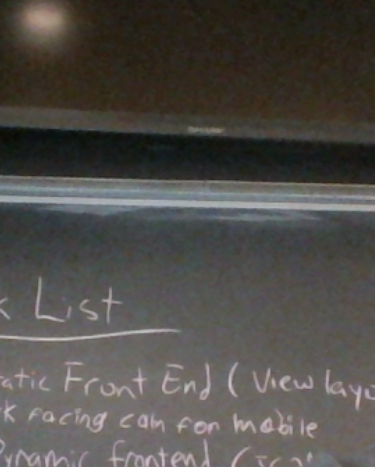 k List
tatic Front End ( View layo
k facing cam for mobile
Dynamic frontend (